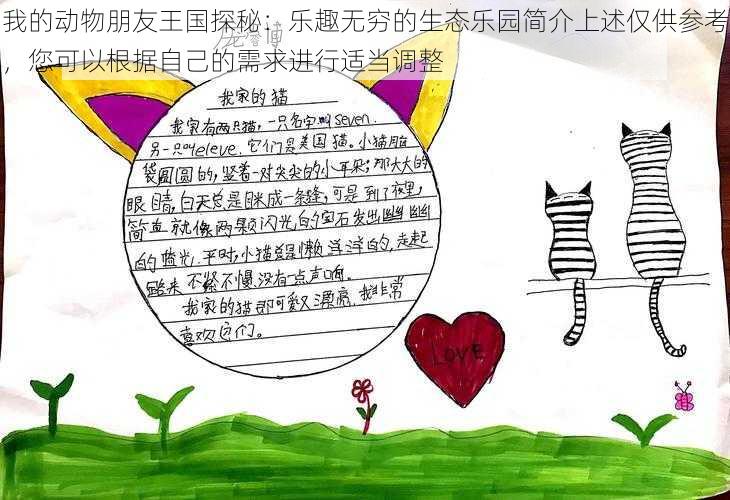 我的动物朋友王国探秘：乐趣无穷的生态乐园简介上述仅供参考
，您可以根据自己的需求进行适当调整
博
我家的猫
我家有两只猫，一只名字叫seven.
另一只叫eleve.它们是美国猫。小猫脑
袋圆圆的，竖着一对尖尖的小耳朵；那大大的
眼睛，白天总是眯成一条缝，可是到了夜里，
简直就像两颗闪光的宝石发出幽幽
的蓝光.平时，小猫总是懒洋洋的，走起
路来不紧不慢，没有一点声响。
我家的猫即可爱又漂亮，我非常
喜欢它们。
LOVE